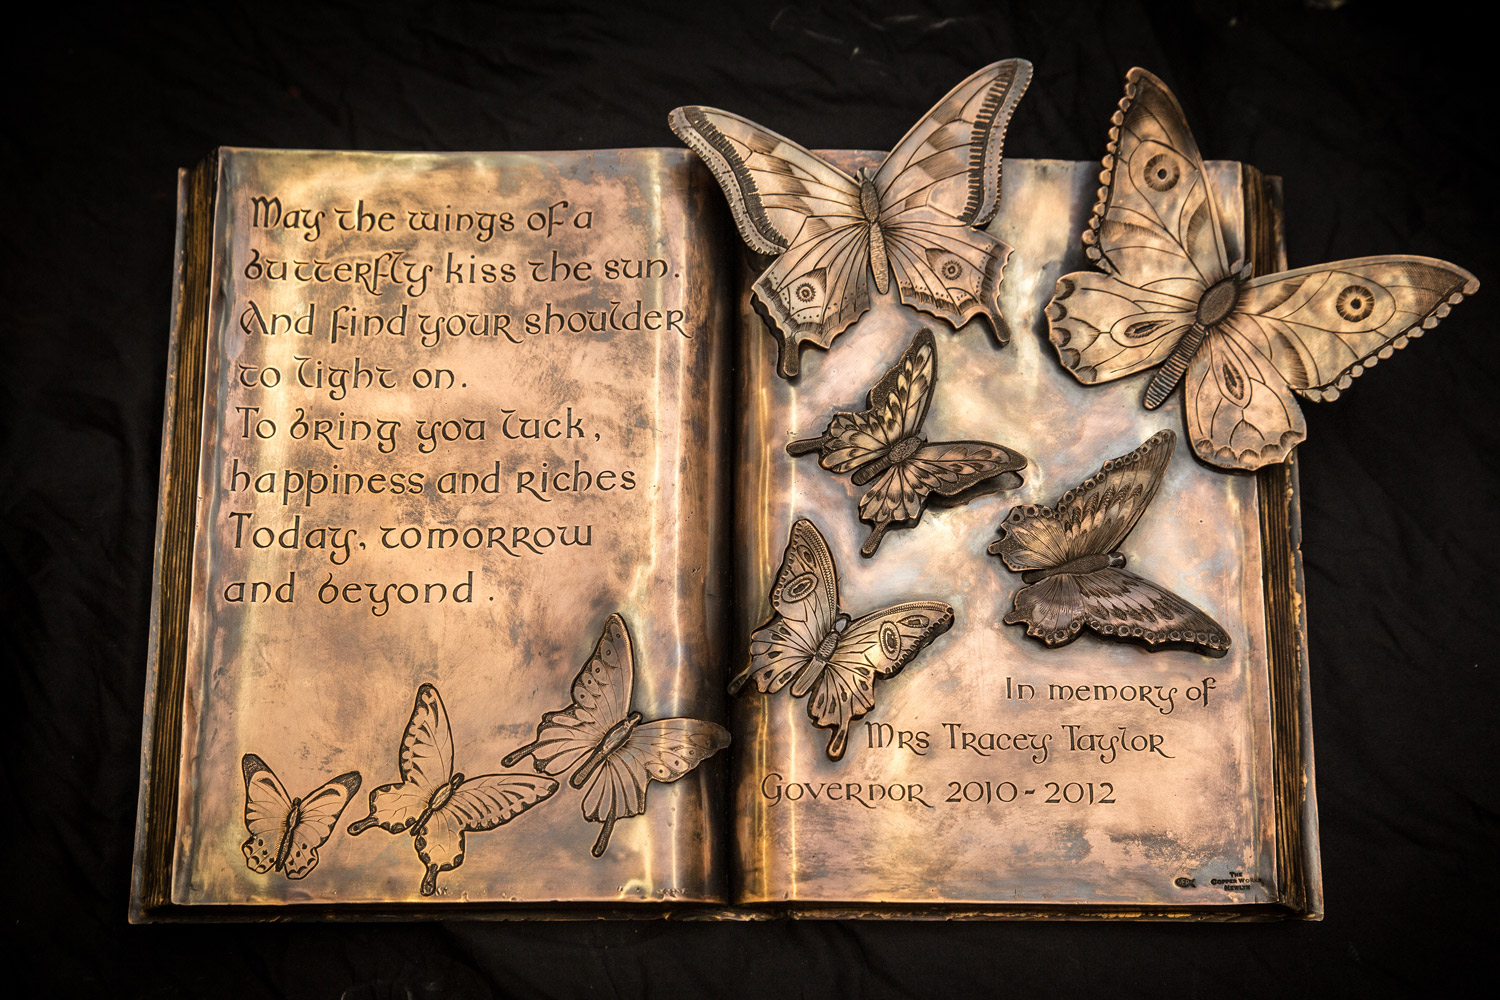 May the wings of a
butterfly kiss the sun.
And find your shoulder
to light on.
To bring you luck,
happiness and riches
Today, tomorrow
and beyond.
In memory of
Mrs Tracey Taylor
Governor 2010-2012
The
Copper Works
Newlyn